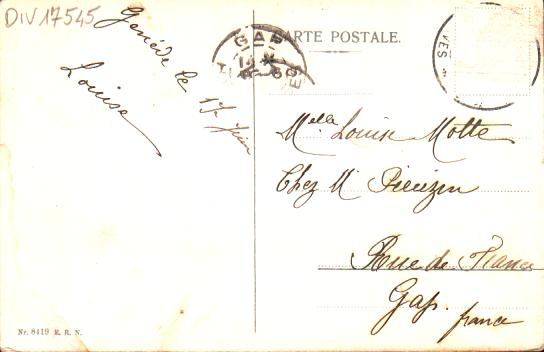 DIV 17545
Genève le 17 juin
Louise
CARTE POSTALE.
GAP
Melle Louise Motte
Chez M
Rue de France
Gap.
france
Nr. 8419 E. R. N.